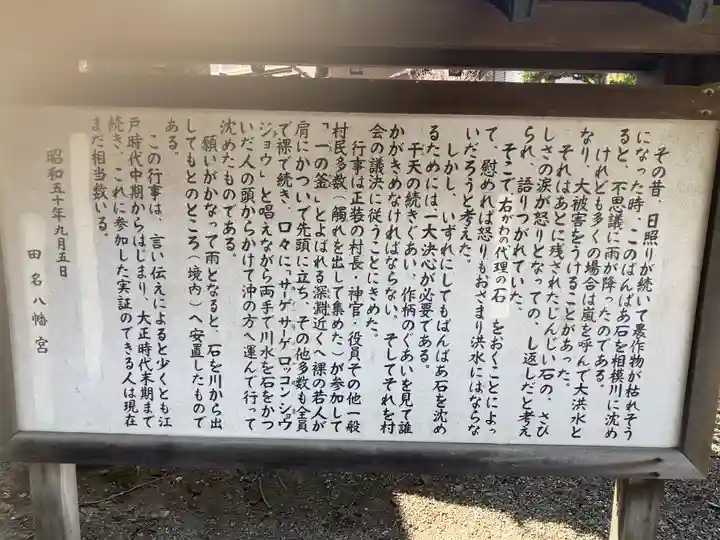 その昔、日照りが続いて農作物が枯れそう
になった時、このばんばあ石を相模川に沈め
ると、不思議に雨が降ったのである。
けれども多くの場合は嵐を呼んで大洪水と
なり、大被害をうけることがあった。
それはあとに残されたじんじい石の、さび
しさの涙が怒りとなっての、し返しだと考え
られ、語りつがれていた。
そこで右がわの代理の石 をおくことによっ
て、慰めれば怒りもおさまり洪水にはならな
いだろうと考えた。
しかし、いずれにしてもばんばあ石を沈め
るためには一大決心が必要である。
干天の続きぐあい、作柄のぐあいを見て誰
かがきめなければならない。そしてそれを村
会の議決に従うことにきめた。
行事は正装の村長・神官・役員その他一般
村民多数(觸れを出して集めた)が参加して
「一の釜」とよばれる深淵近くへ裸の若人が
肩にかついで先頭に立ち、その他多数も全員
で裸で続き、口々に「サーゲサーゲロッコンショウ
ジョウ」と唱えながら両手で川水を石をかつ
いだ人の頭からかけて沖の方へ運んで行って
沈めたものである。
願いがかなって雨となると、石を川から出
してもとのところ(境内)へ安置したもので
ある。
この行事は、言い伝えによると少くとも江
戸時代中期からはじまり、大正時代末期まで
続き、これに参加した実証のできる人は現在
まだ相当数いる。
昭和五十年九月五日
田名八幡宮